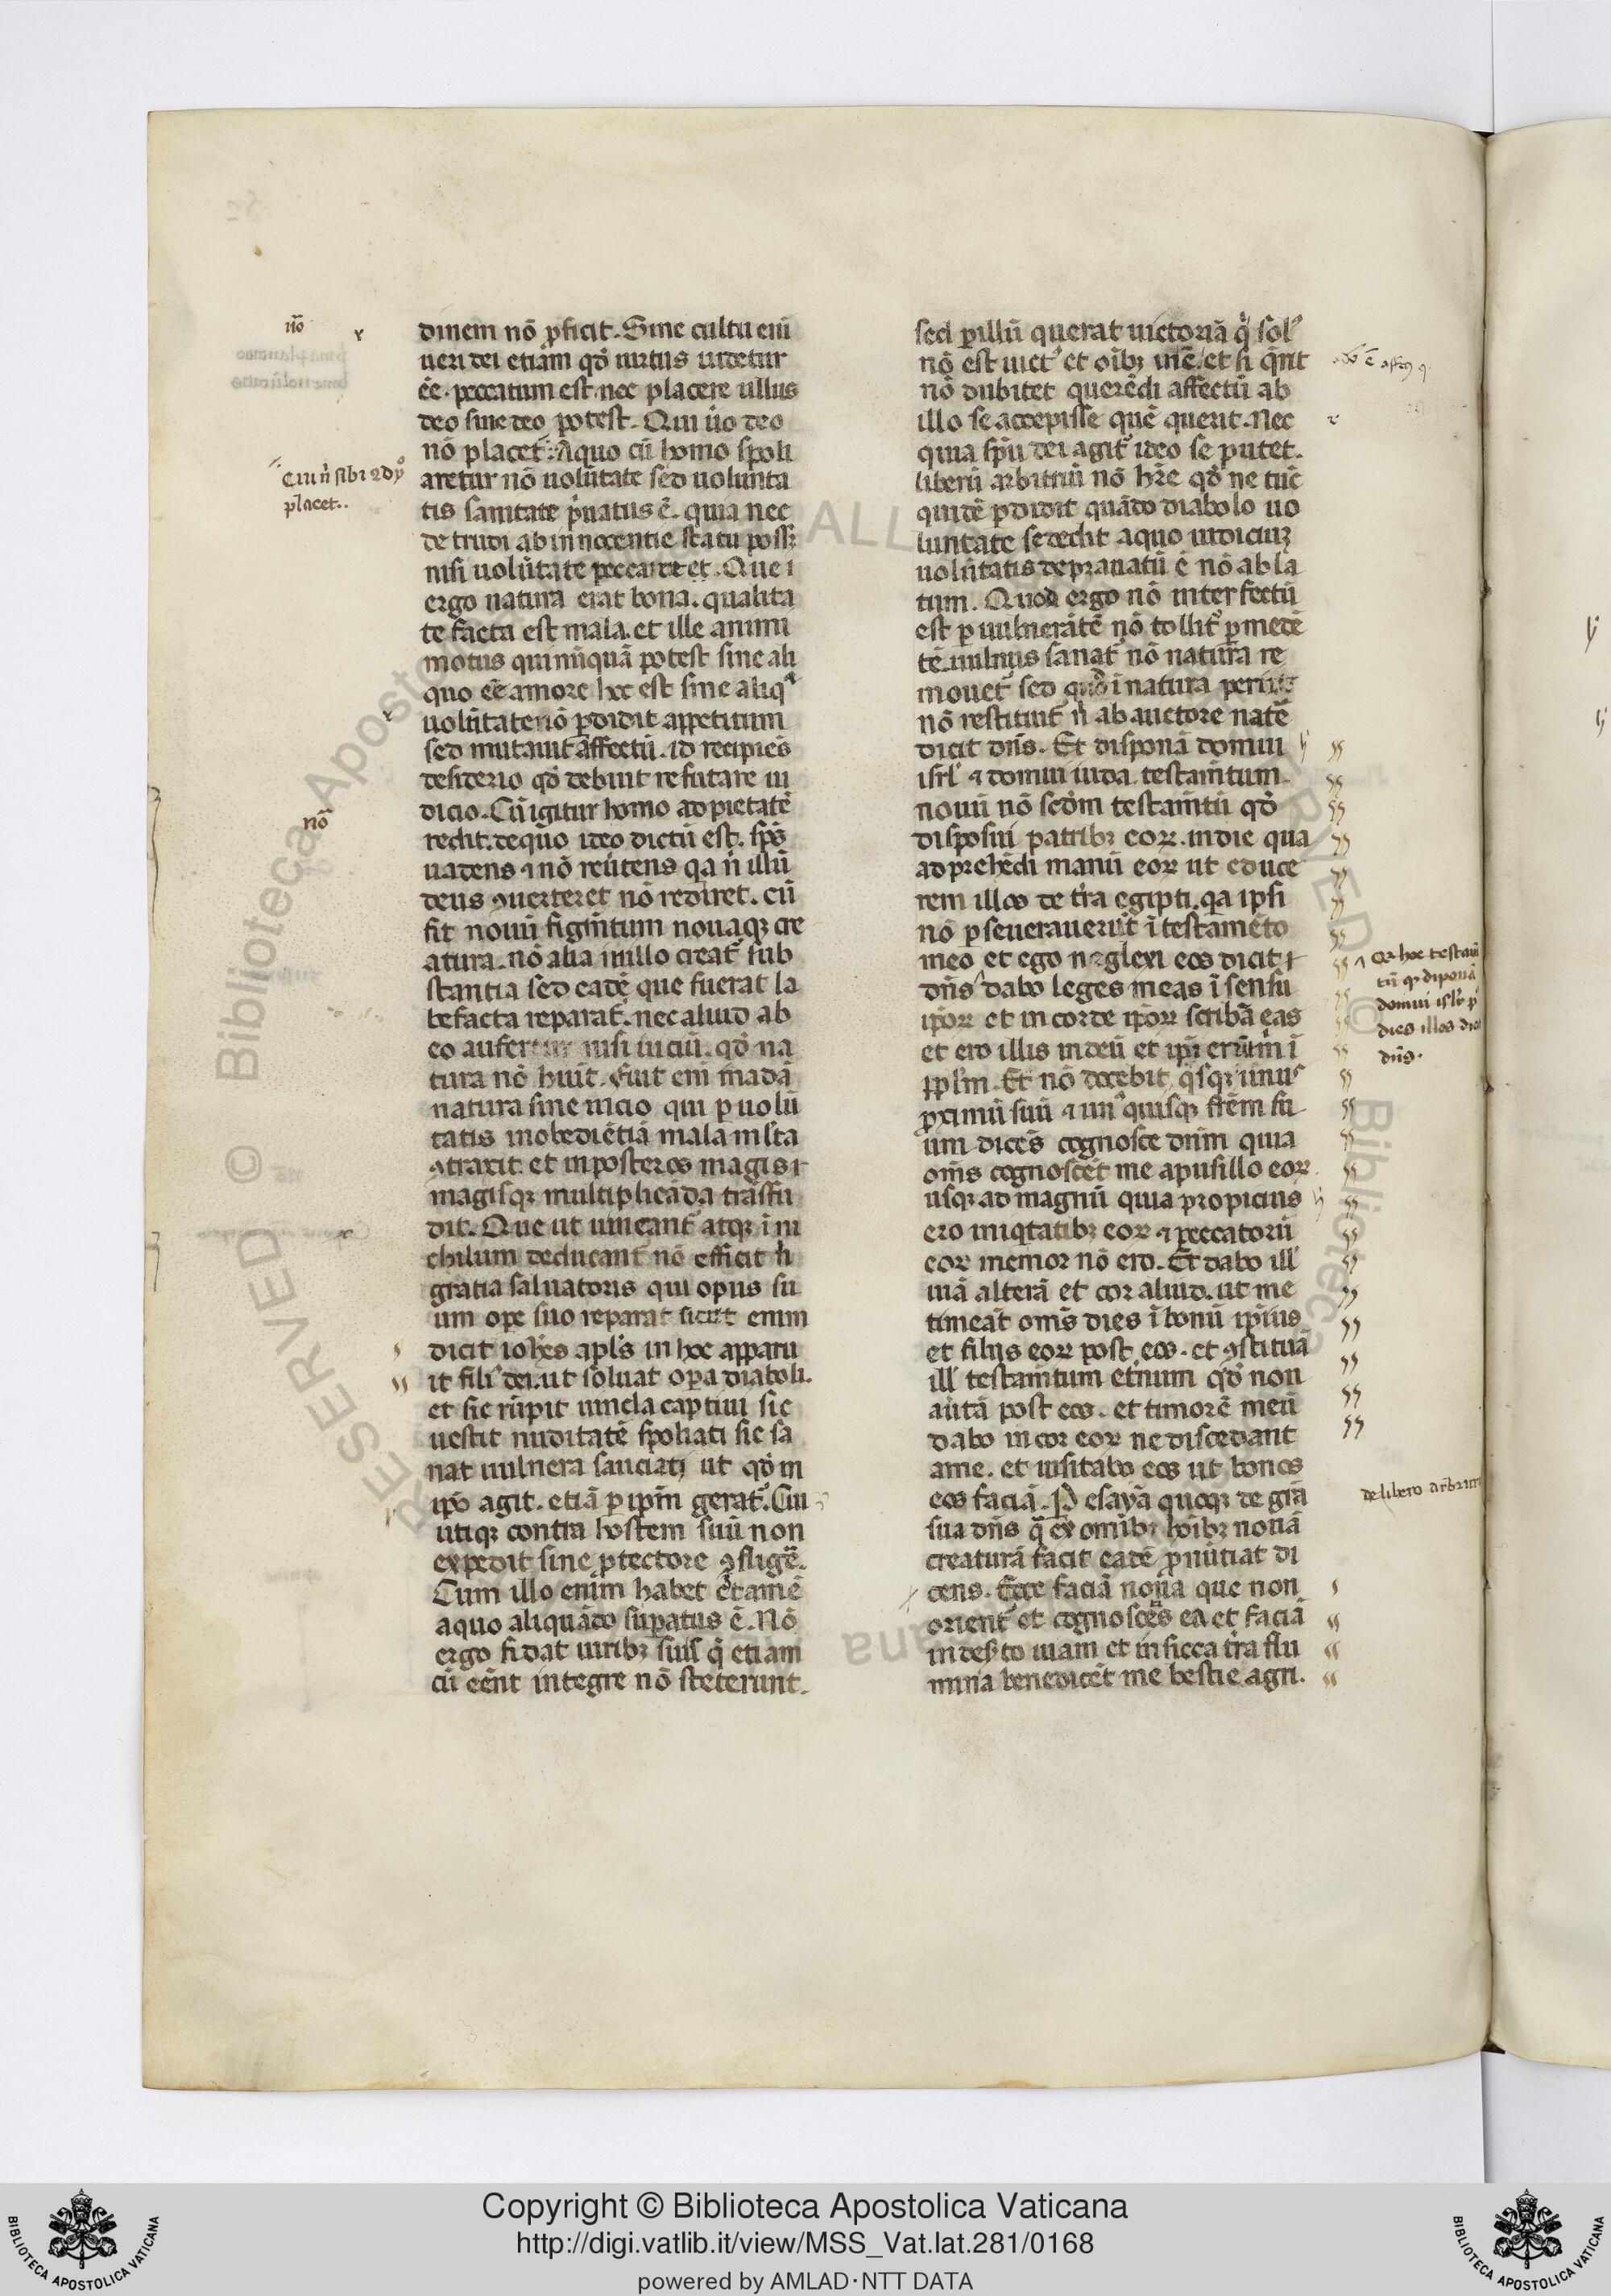 dinem nō ꝓficit. Sine cultu eni
ueri dei etiam qđ uirtus uidetur
ēe. peccatum est nec placere ullus
deo sine deo potest. Qui ůo deo
nō placet. Aquo cū homo spoli
aretur nō uolūtate sed uolunta
tis sanitate p̓uatus ē. quia nec
de trudi ab innocentie statu poss;
nisi uolūtate
ergo natura erat bona. qualita
te facta est mala. et ille animi
motus qui nūquā potest sine ali
quo ēe amore hoc est sine aliqª
uolūtate nō ꝑdidit appetitum
sed mutauit affectū. id recipiēs
desiderio qđ debuit refutare iu
dicio. Cū igitur homo ad pietatē
redit. de quo ideo dictū est. sp̄s
uadens ⁊ nō reůtens qa n̓ illū
deus ꝯuerteret nō rediret. cū
fit nouū figm̄tum nouaqȝ cre
atura. nō alia in illo creat᷑ sub
stantia sed eadē que fuerat la
befacta reparat᷑. nec aliud ab
eo aufertur nisi uiciū. qđ na
tura nō huit. Fuit eni in adā
natura sine uicio qui ꝑ uolū
tatis inobediētiā mala m̄lta
ꝯtraxit. et in posteros magis ⁊
magisqȝ multiplicāda trāsfu
dit. Que ut uincant᷑ atqȝ ī ni
chilum deducant᷑ nō efficit n̓
gratia saluatoris qui opus su
um ope suo reparat sicut enim
dicit ioħes apl̄s in hoc apparu
it fili᷒ dei. ut soluat opa diaboli.
et sic rūpit uincla captiui sic
uestit nuditatē spoliati sic sa
nat uulnera sauciati ut qđ in
ip̄o agit. etiā ꝑ ip̄m gerat᷑. Cui
utiqȝ contra hostem suū non
expedit sine ꝓtectore ꝯfligē.
Cum illo enim habet c̓tamē
aquo aliquādo suꝑatus ē. Nō
ergo fidat uiribȝ suis q̓ etiam
cū eēnt integre nō steterunt.
sed ꝑ illū querat uictoriā q̓ sol᷒
nō est uict᷒ et oībȝ uīc̄. et si q̄rit
nō dubitet querēdi affectū ab
illo se accepisse quē querit. Nec
quia sp̄u dei agit᷑ ideo se putet.
liberū arbitriū nō hr̄e qđ ne tūc
quidē ꝑdidit quādo diabolo uo
luntate se dedit aquo iudiciuȝ
uolūtatis deprauatū ē nō abla
tum. Quod ergo nō interfectū
est ꝑ uulnerātē nō tollit᷑ ꝑ medē
tē. uulnus sanat᷑ nō natura re
mouet᷑ sed quod ī natura periit
nō restituit᷑ n̓ ab auctore nat̄e
dicit dn̄s. Et disponā domui
isrl̓ ⁊ domui iuda testam̄tum
nouū nō scd̄m testam̄tū qđ
disposui patribȝ eoꝝ. in die qua
adprehēdi manū eoꝝ ut educe
rem illos de tr̄a egipti. qa ipsi
nō ꝑseuerauerūt ī testamēto
meo et ego neglexi eos dicit
dn̄s dabo leges meas ī sensu
ipoꝝ et in corde ipoꝝ scribā eas
et ero illis in deū et ip̄i erunt m̓ ī
ppl̄m. Et nō docebit q̓sqȝ unus
ꝓximū suū ⁊ un᷒quisqȝ fr̄em su
um dicēs cognosce dn̄m quia
om̄s cognoscēt me apusillo eoꝝ
usqȝ ad magnū quia propicius
ero iniqtatibȝ eoꝝ ⁊ peccatorū
eoꝝ memor nō ero. Et dabo ill̓
uiā alterā et cor aliud. ut me
timeāt om̄s dies ī bonū ip̄ius
et filiis eoꝝ post eos. et ꝯstituā
ill̓ testam̄tum et̓num qđ non
aūtā post eos. et timorē meū
dabo in cor eoꝝ ne discedant
ame. et uisitabo eos ut bonos
eos faciā. P̱ esayā quoqȝ de gr̄a
sua dn̄s q̄ ex omībȝ hoībȝ nouā
creaturā facit eadē ꝓnūtiat di
cens. Ecce faciā noua que non
orient᷑ et cognoscēs ea et faciā
in des̓to uiam et in sicca tr̄a flu
mina benedicēt me bestie agri.
nō
Cui n̓ sibi
placet..
nō
hoc testam̄
tū qđ disponā
domui isrl̓ p̓
dies illos dicit
dn̄s.
de libero arbitrio
RESERVED © Biblioteca Apostolica
ALL
Copyright © Biblioteca Apostolica Vaticana
http://digi.vatlib.it/view/MSS_Vat.lat.281/0168
powered by AMLAD·NTT DATA
BIBLIOTECA APOSTOLICA VATICANA
BIBLIOTECA APOSTOLICA VATICANA